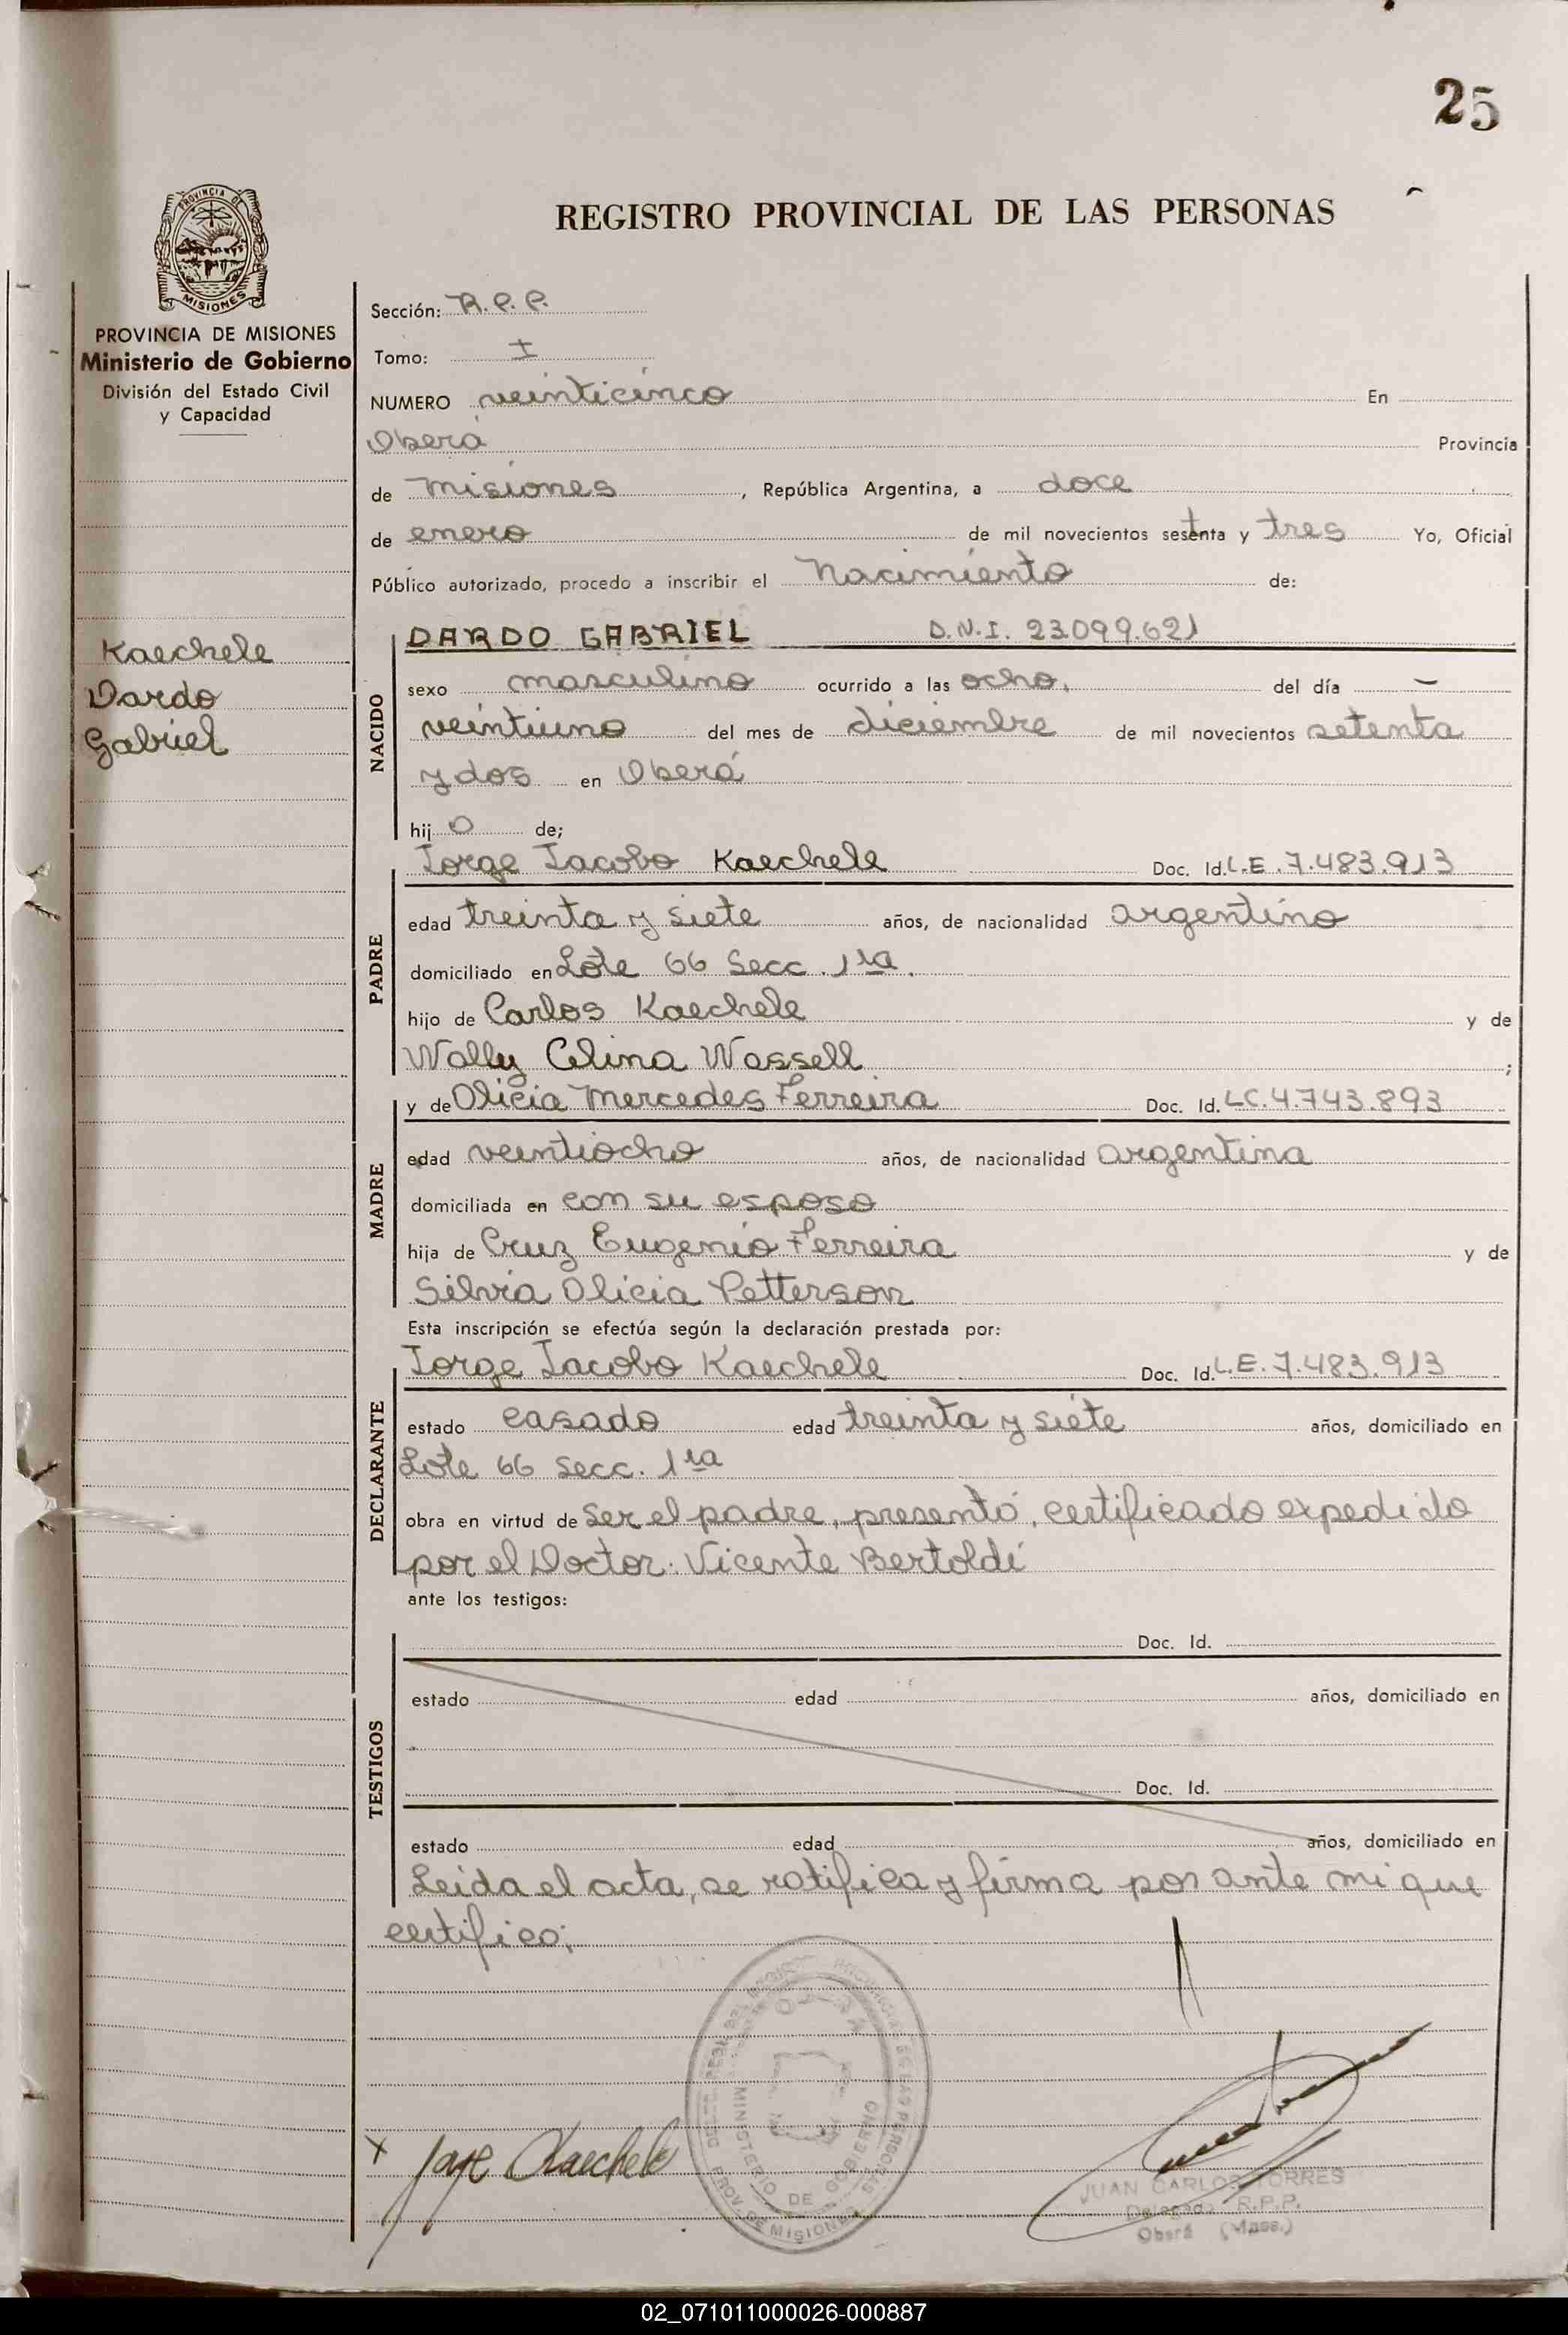 25
REGISTRO PROVINCIAL DE LAS PERSONAS
PROVINCIA DE MISIONES
Ministerio de Gobierno
División del Estado Civil
y Capacidad
Kaechele
Dardo
Gabriel
Sección: R.P.P.
Tomo: I
NUMERO veinticinco En
Oberá Provincia
de misiones, República Argentina, a doce
de enero de mil novecientos setenta y tres Yo, Oficial
Público autorizado, procedo a inscribir el Nacimiento de:
NACIDO
DARDO GABRIEL D.N.I. 23.099.621
sexo masculino ocurrido a las ocho, del día —
veintiuno del mes de diciembre de mil novecientos setenta
y dos en Oberá
hij o de;
PADRE
Jorge Jacobo Kaechele Doc. Id. L.E. 7.483.913
edad treinta y siete años, de nacionalidad argentino
domiciliado en Lote 66 Secc. 1ra.
hijo de Carlos Kaechele y de
Wally Celina Wassell ;
MADRE
y de Olicia Mercedes Ferreira Doc. Id. LC. 4.743.893
edad veintiocho años, de nacionalidad argentina
domiciliada en con su esposo
hija de Cruz Eugenio Ferreira y de
Silvia Olicia Petterson
Esta inscripción se efectúa según la declaración prestada por:
DECLARANTE
Jorge Jacobo Kaechele Doc. Id. L.E. 7.483.913
estado casado edad treinta y siete años, domiciliado en
Lote 66 Secc. 1ra
obra en virtud de ser el padre, presentó, certificado expedido
por el Doctor: Vicente Bertoldi
ante los testigos:
TESTIGOS
Doc. Id.
estado edad años, domiciliado en
Doc. Id.
estado edad años, domiciliado en
Leída el acta, se ratifica y firma por ante mi que
certifico;
x Jorge Kaechele
MINISTERIO DE GOBIERNO
PROV. DE MISIONES
JUAN CARLOS TORRES
Delegado R.P.P.
Oberá (Mnes.)
02_071011000026-000887